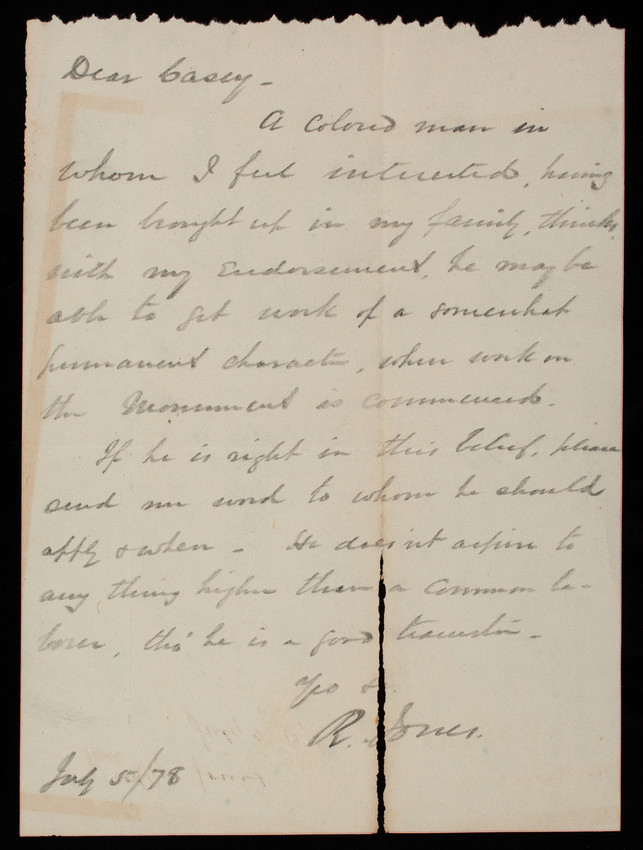 Dear Casey -
A colored man in
whom I feel interested, having
been brought up in my family, thinks
with my Endorsement, he may be
able to get work of a somewhat
permanent character, when work on
the Monument is commenced.
If he is right in this belief, please
send me word to whom he should
apply & when - He does'nt aspire to
any thing higher than a common la-
borer, tho' he is a good teamster -
Yrs &c.
R. Jones.
July 5/78